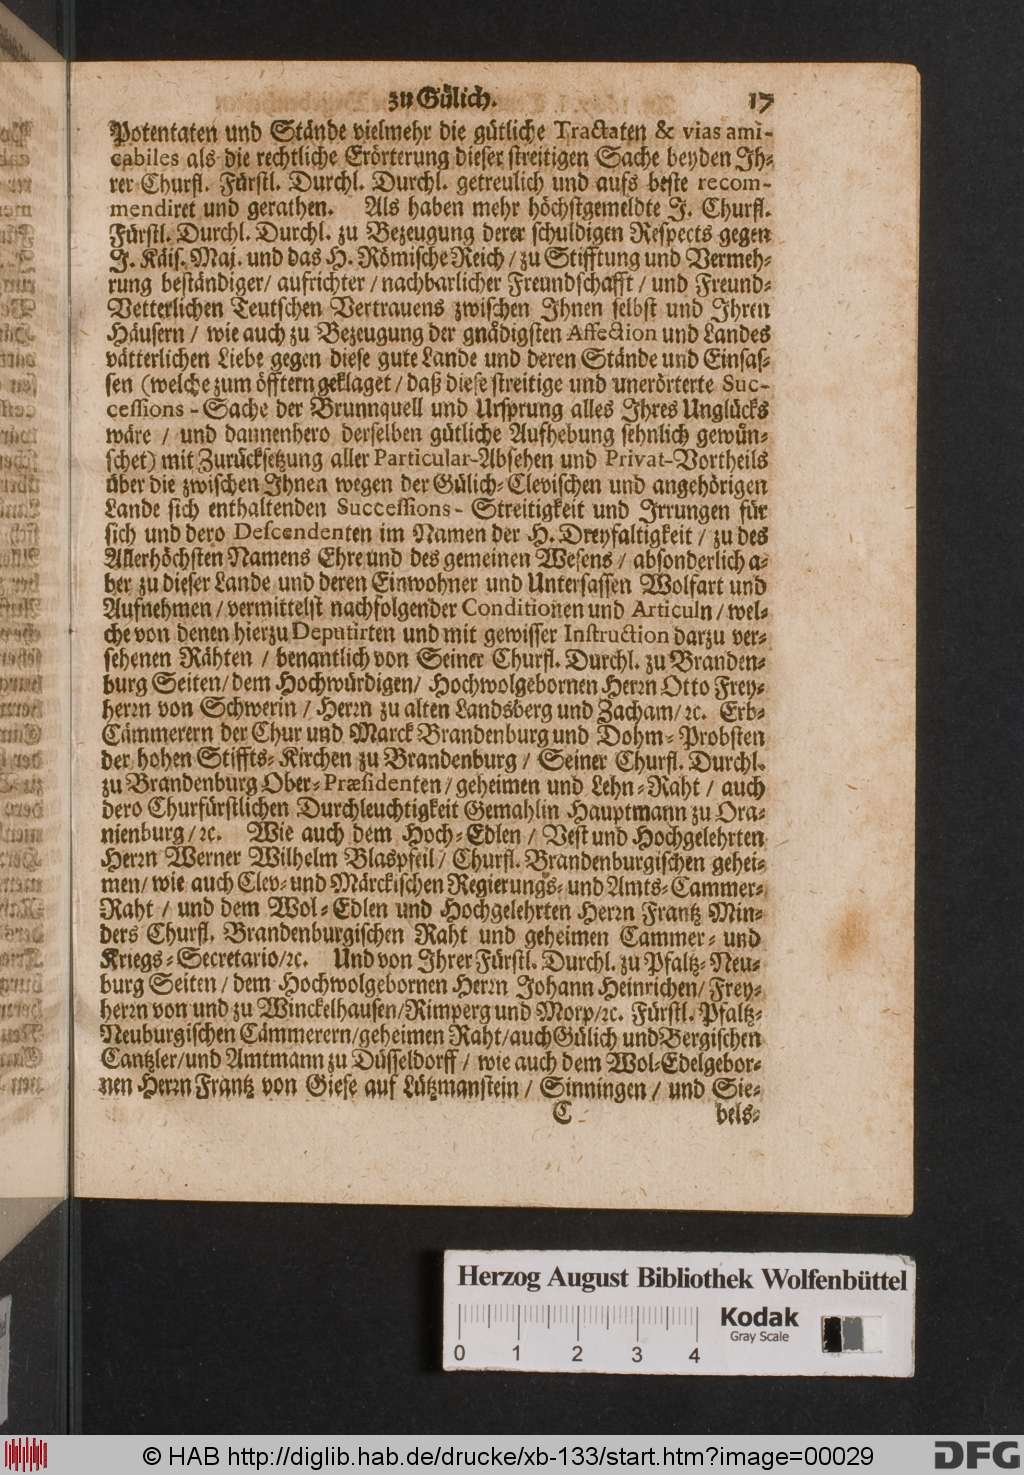 zu Gülich. 17
Potentaten und Stände vielmehr die gütliche Tractaten & vias ami-
cabiles als die rechtliche Erörterung dieser streitigen Sache beyden Ih-
rer Churfl. Fürstl. Durchl. Durchl. getreulich und aufs beste recom-
mendiret und gerathen. Als haben mehr höchstgemeldte J. Churfl.
Fürstl. Durchl. Durchl. zu Bezeugung derer schuldigen Respects gegen
J. Käis. Maj. und das H. Römische Reich / zu Stifftung und Vermeh-
rung beständiger / aufrichter / nachbarlicher Freundschafft / und Freund-
Vetterlichen Teutschen Vertrauens zwischen Ihnen selbst und Ihren
Häusern / wie auch zu Bezeugung der gnädigsten Affection und Landes
vätterlichen Liebe gegen diese gute Lande und deren Stände und Einsas-
sen (welche zum öfftern geklaget / daß diese streitige und unerörterte Suc-
cessions-Sache der Brunnquell und Ursprung alles Ihres Unglücks
wäre / und dannenhero derselben gütliche Aufhebung sehnlich gewün-
schet) mit Zurücksetzung aller Particular-Absehen und Privat-Vortheils
über die zwischen Ihnen wegen der Gülich-Clevischen und angehörigen
Lande sich enthaltenden Successions-Streitigkeit und Irrungen für
sich und dero Descendenten im Namen der H. Dreyfaltigkeit / zu des
Allerhöchsten Namens Ehre und des gemeinen Wesens / absonderlich a-
ber zu dieser Lande und deren Einwohner und Untersassen Wolfart und
Aufnehmen / vermittelst nachfolgender Conditionen und Articuln / wel-
che von denen hierzu Deputirten und mit gewisser Instruction darzu ver-
sehenen Rähten / benantlich von Seiner Churfl. Durchl. zu Branden-
burg Seiten / dem Hochwürdigen / Hochwolgebornen Herrn Otto Frey-
herrn von Schwerin / Herrn zu alten Landsberg und Zacham / ꝛc. Erb-
Cämmerern der Chur und Marck Brandenburg und Dohm-Probsten
der hohen Stiffts-Kirchen zu Brandenburg / Seiner Churfl. Durchl.
zu Brandenburg Ober-Præsidenten / geheimen und Lehn-Raht / auch
dero Churfürstlichen Durchleuchtigkeit Gemahlin Hauptmann zu Ora-
nienburg / ꝛc. Wie auch dem Hoch-Edlen / Vest und Hochgelehrten
Herrn Werner Wilhelm Blaspfeil / Churfl. Brandenburgischen gehei-
men / wie auch Clev- und Märckischen Regierungs- und Amts-Cammer-
Raht / und dem Wol-Edlen und Hochgelehrten Herrn Frantz Min-
ders Churfl. Brandenburgischen Raht und geheimen Cammer- und
Kriegs-Secretario / ꝛc. Und von Ihrer Fürstl. Durchl. zu Pfaltz-Neu-
burg Seiten / dem Hochwolgebornen Herrn Johann Heinrichen / Frey-
herrn von und zu Winckelhausen / Rimperg und Morp / ꝛc. Fürstl. Pfaltz-
Neuburgischen Cämmerern / geheimen Raht / auch Gülich und Bergischen
Cantzler / und Amtmann zu Düsseldorff / wie auch dem Wol-Edelgebor-
nen Herrn Frantz von Giese auf Lützmanstein / Sinningen / und Sie-
C bels-
Herzog August Bibliothek Wolfenbüttel
Kodak
Gray Scale
0 1 2 3 4
© HAB http://diglib.hab.de/drucke/xb-133/start.htm?image=00029
DFG